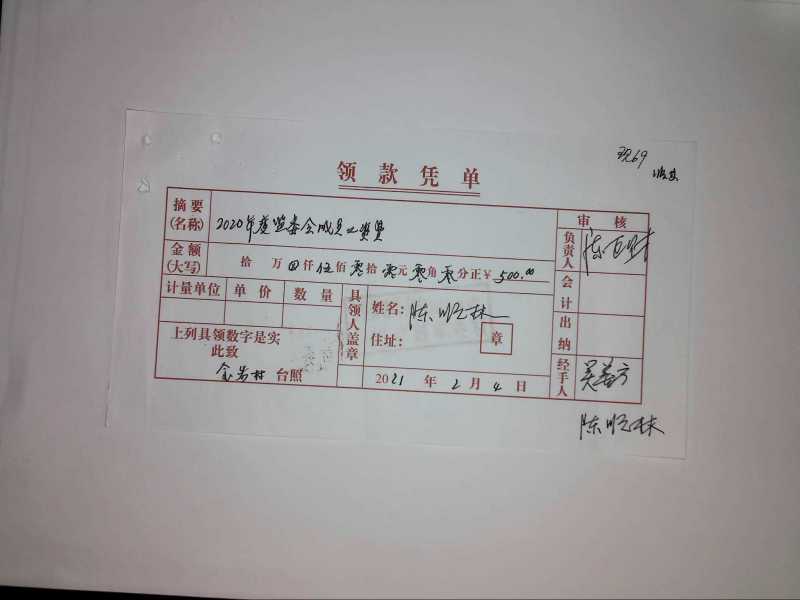 现69
领款凭单
摘要(名称) 2020年度监委会成员工资费 审核
金额(大写) 拾万⊕仟伍佰零拾零元零角零分正¥500.00 负责人
计量单位 单价 数量 具领人盖章 姓名:陈顺林 会计
住址: 章 出纳
上列具领数字是实
此致
金岩村 台照 2021年2月4日 经手人 吴善方
陈顺林